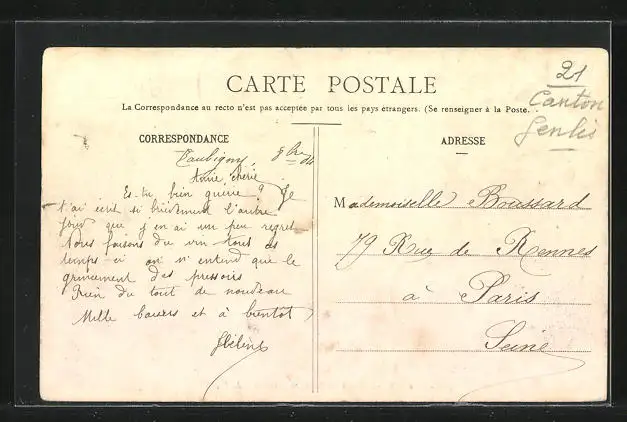 21
Canton
Genlis
CARTE POSTALE
La Correspondance au recto n'est pas acceptée par tous les pays étrangers. (Se renseigner à la Poste.
CORRESPONDANCE
8bre 04
Amie chérie
Es-tu bien guérie ? Je
t'ai écrit si brièvement l'autre
jour que j'en ai un peu regret
Nous faisons du vin tout ces
temps-ci on n'entend que le
grincement des pressoirs
Rien du tout de nouveau
Mille baisers et à bientôt
Hélène
ADRESSE
Mademoiselle Boussard
79 Rue de Rennes
à Paris
Seine